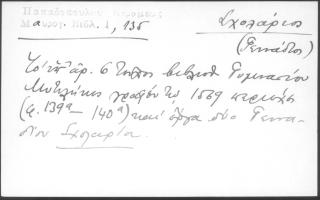 Παπαδοπούλου Κεραμέως
Μαυρογ. Βιβλ. 1, 135
Σχολάριος
(Γεννάδιος)
Τὸ ὑπ' ἀρ. 6 βιβλιοθ. Γυμνασίου
Μυτιλήνης γραφὲν τῷ 1569 περιέχει
(φ. 139α - 140α) καὶ ἔργα τοῦ Γεννα-
δίου Σχολαρίου.